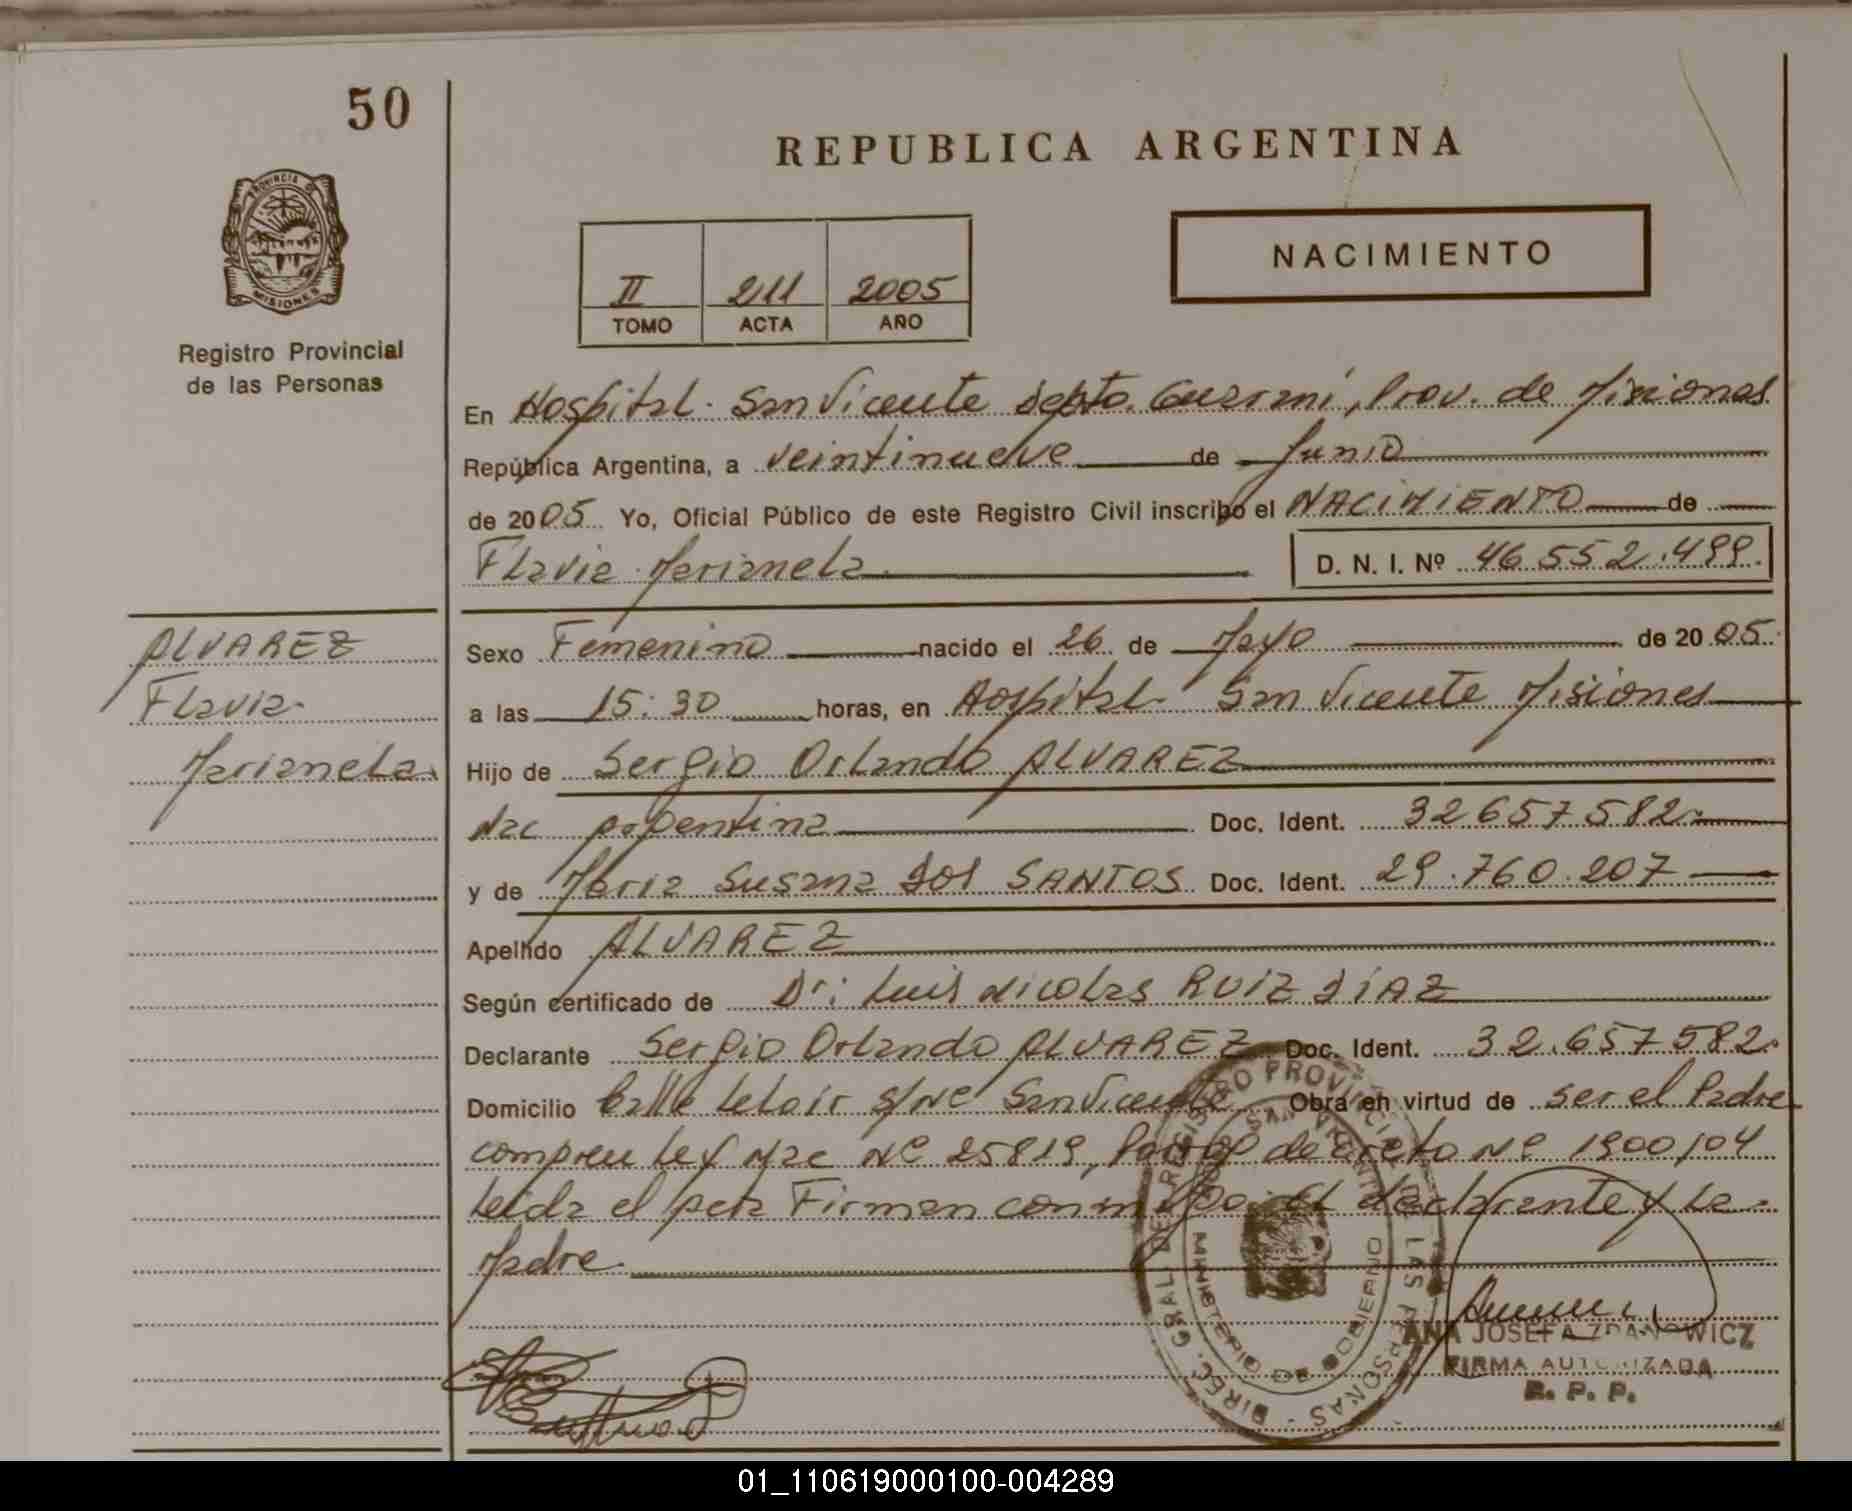 50
REPUBLICA ARGENTINA
PROVINCIA DE
MISIONES
NACIMIENTO
II 211 2005
TOMO ACTA AÑO
Registro Provincial
de las Personas
En Hospital. San Vicente Depto. Guarani, Prov. de Misiones
República Argentina, a veintinueve de Junio
de 2005 Yo, Oficial Público de este Registro Civil inscribo el NACIMIENTO de
Flavia Marianela D. N. I. Nº 46.552.499.
ALVAREZ
Flavia
Marianela
Sexo Femenino nacido el 26 de Mayo de 2005
a las 15:30 horas, en Hospital San Vicente Misiones
Hijo de Sergio Orlando ALVAREZ
Nac Argentina Doc. Ident. 32.657.582
y de Maria Susana Dos SANTOS Doc. Ident. 29.760.207
Apellido ALVAREZ
Según certificado de Dr: Luis Nicolas RUIZ DÍAZ
Declarante Sergio Orlando ALVAREZ Doc. Ident. 32.657.582.
Domicilio Calle Leloir S/Nº San Vicente Obra en virtud de ser el Padre
Ley Nac Nº 25819, decreto Nº 1900/04
Leida el acta Firman conmigo: El declarante y La
Madre.
DIREC. GRAL. DE REGISTRO PROVINCIAL DE LAS PERSONAS
SAN VICENTE
MINISTERIO DE GOBIERNO
ANA JOSEFA ZDANOWICZ
FIRMA AUTORIZADA
R. P. P.
01_110619000100-004289